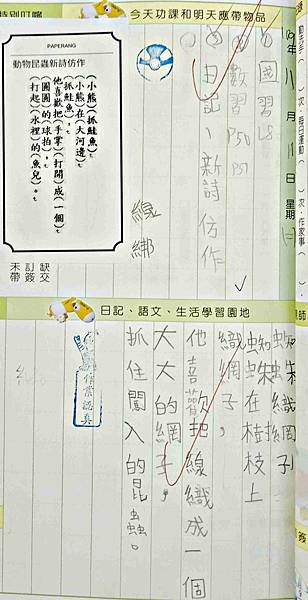 今天功課和明天應帶物品
特別叮嚀
PAPERANG
動物昆蟲新詩仿作
(小熊)(抓鮭魚)
小熊(在)(大河邊)
(抓鮭魚),
他喜歡把(手掌)(打開)成(一個)
(圓圓)的(球拍),
(打起)(水裡)的(魚兒)。
年 11 月 11 日 星期(二)
國習L8
數習P50 P51
日記、新詩仿作
線 綁
缺交
訂簽
未帶
日記、語文、生活學習園地
蜘蛛織網子
蜘蛛在樹枝上
織網子,
他喜歡把線織成一個
大大的網子,
抓住闖入的昆蟲。
作業認真